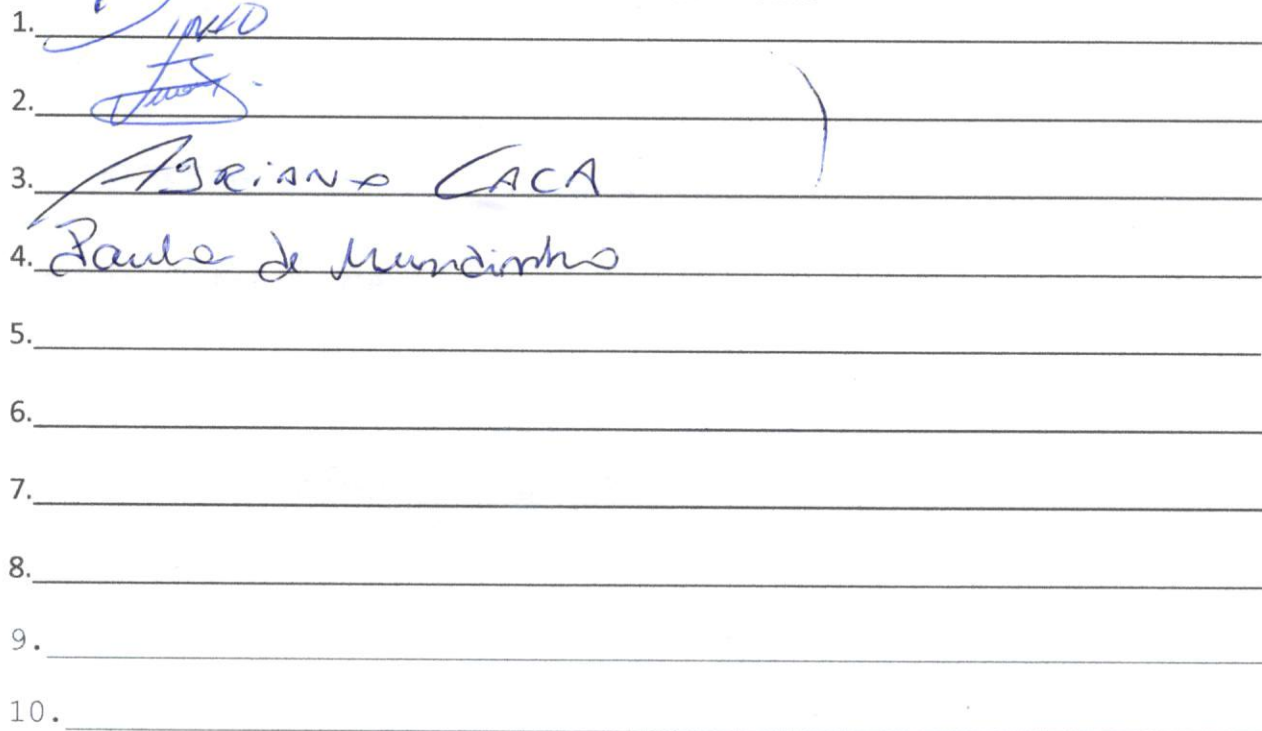 1.
2.
3. Adriano CACA
4. Paulo de Mundinho
5.
6.
7.
8.
9.
10.